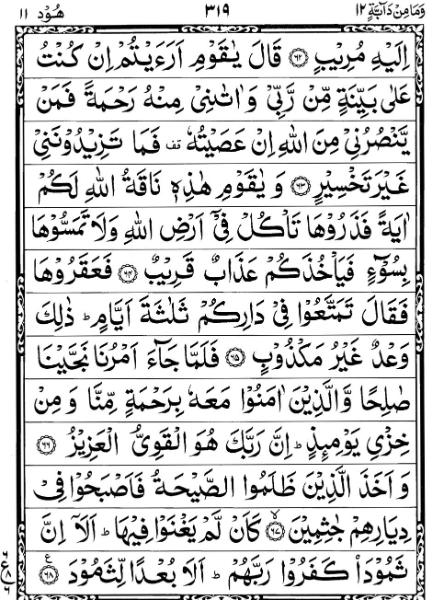 وَمَا مِنْ دَآبَّةٍ ١٢ ٣١٩ هُوْد ١١
اِلَيْهِ مُرِيْبٍ ﴿٦٢﴾ قَالَ يٰقَوْمِ اَرَءَيْتُمْ اِنْ كُنْتُ
عَلٰى بَيِّنَةٍ مِّنْ رَّبِّىْ وَاٰتٰىنِىْ مِنْهُ رَحْمَةً فَمَنْ
يَّنْصُرُنِىْ مِنَ اللّٰهِ اِنْ عَصَيْتُهٗ قف فَمَا تَزِيْدُوْنَنِىْ
غَيْرَ تَخْسِيْرٍ ﴿٦٣﴾ وَيٰقَوْمِ هٰذِهٖ نَاقَةُ اللّٰهِ لَكُمْ
اٰيَةً فَذَرُوْهَا تَاْكُلْ فِىْۤ اَرْضِ اللّٰهِ وَلَا تَمَسُّوْهَا
بِسُوْٓءٍ فَيَاْخُذَكُمْ عَذَابٌ قَرِيْبٌ ﴿٦٤﴾ فَعَقَرُوْهَا
فَقَالَ تَمَتَّعُوْا فِىْ دَارِكُمْ ثَلٰثَةَ اَيَّامٍ ؕ ذٰلِكَ
وَعْدٌ غَيْرُ مَكْذُوْبٍ ﴿٦٥﴾ فَلَمَّا جَآءَ اَمْرُنَا نَجَّيْنَا
صٰلِحًا وَّالَّذِيْنَ اٰمَنُوْا مَعَهٗ بِرَحْمَةٍ مِّنَّا وَمِنْ
خِزْىِ يَوْمِئِذٍ ؕ اِنَّ رَبَّكَ هُوَ الْقَوِىُّ الْعَزِيْزُ ﴿٦٦﴾
وَاَخَذَ الَّذِيْنَ ظَلَمُوا الصَّيْحَةُ فَاَصْبَحُوْا فِىْ
دِيَارِهِمْ جٰثِمِيْنَ ﴿٦٧﴾ۙ كَاَنْ لَّمْ يَغْنَوْا فِيْهَا ؕ اَلَاۤ اِنَّ
ثَمُوْدَا۟ كَفَرُوْا رَبَّهُمْ ؕ اَلَا بُعْدًا لِّثَمُوْدَ ﴿٦٨﴾ ع